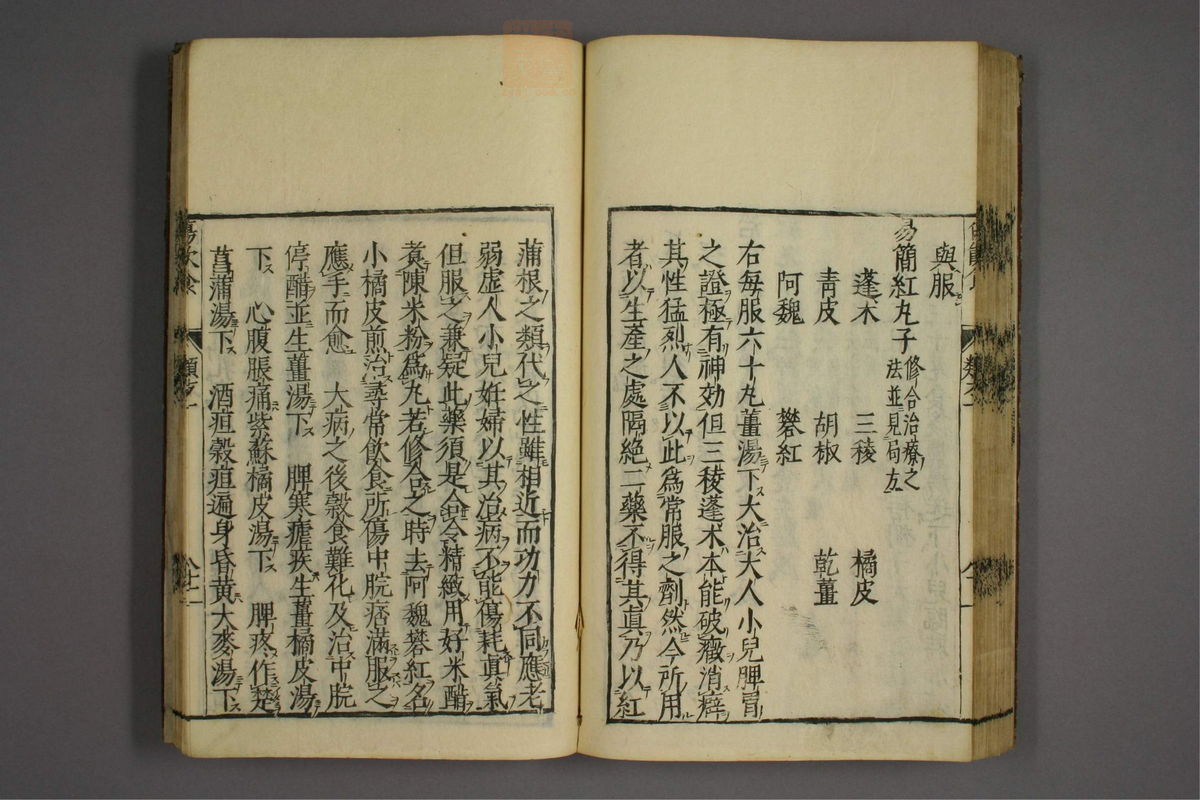 與服
易簡紅丸子 修合治療之
法並見局左
蓬朮 三稜 橘皮
青皮 胡椒 乾薑
阿魏 礬紅
右每服六十丸薑湯下大治大人小兒脾胃
之證極有神効但三稜蓬朮本能破癥消癖
其性猛烈人不以此為常服之劑然今所用
者以生產之處隔絕二藥不得其真乃以紅
蒲根之類代之性雖相近而功力不同應老
弱虛人小兒妊婦以其治病不能傷耗真氣
但服之兼疑此藥須是合令精緻用好米醋
煮陳米粉為丸若修合之時去阿魏礬紅名
小橘皮煎治尋常飲食所傷中脘痞滿服之
應手而愈 大病之後穀食難化及治中脘
停醋並生薑湯下 脾寒瘧疾生薑橘皮湯
下 心腹脹痛紫蘇橘皮湯下 脾疼作楚
菖蒲湯下 酒疸穀疸遍身昏黃大麥湯下